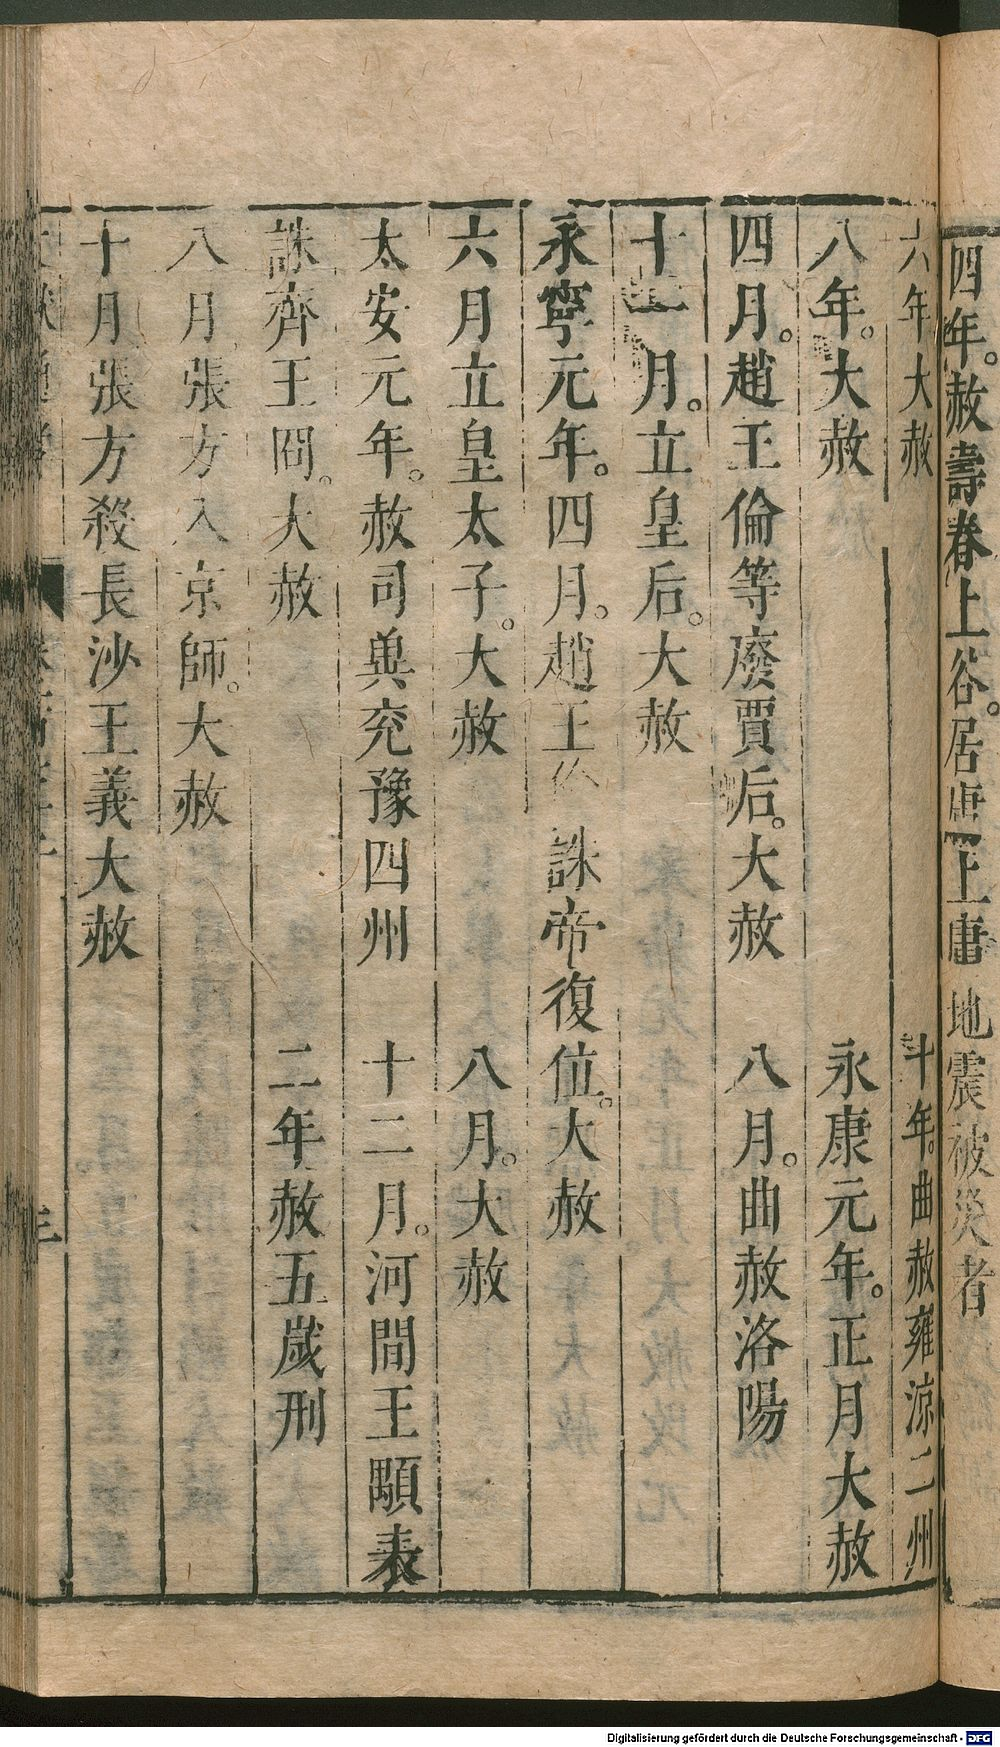 四年。赦壽春上谷。居庸。上庸 地震被災者
六年大赦 十年。曲赦雍涼二州
八年。大赦 永康元年。正月大赦
四月。趙王倫等廢賈后。大赦 八月。曲赦洛陽
十一月。立皇后。大赦
永寧元年。四月。趙王 誅帝復位。大赦
六月立皇太子。大赦 八月。大赦
太安元年。赦司兾兖豫四州 十二月。河間王顒表
誅齊王冏。大赦 二年赦五歲刑
八月張方入京師。大赦
十月張方殺長沙王義大赦
Digitalisierung gefördert durch die Deutsche Forschungsgemeinschaft - DFG